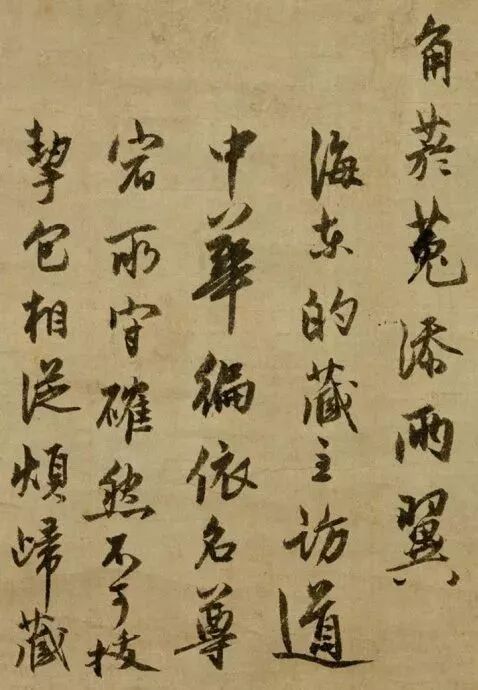 角菸菟添兩翼
海東的藏主訪道
中華徧依名尊
宿所守確然不可拔
挈包相從煩歸藏